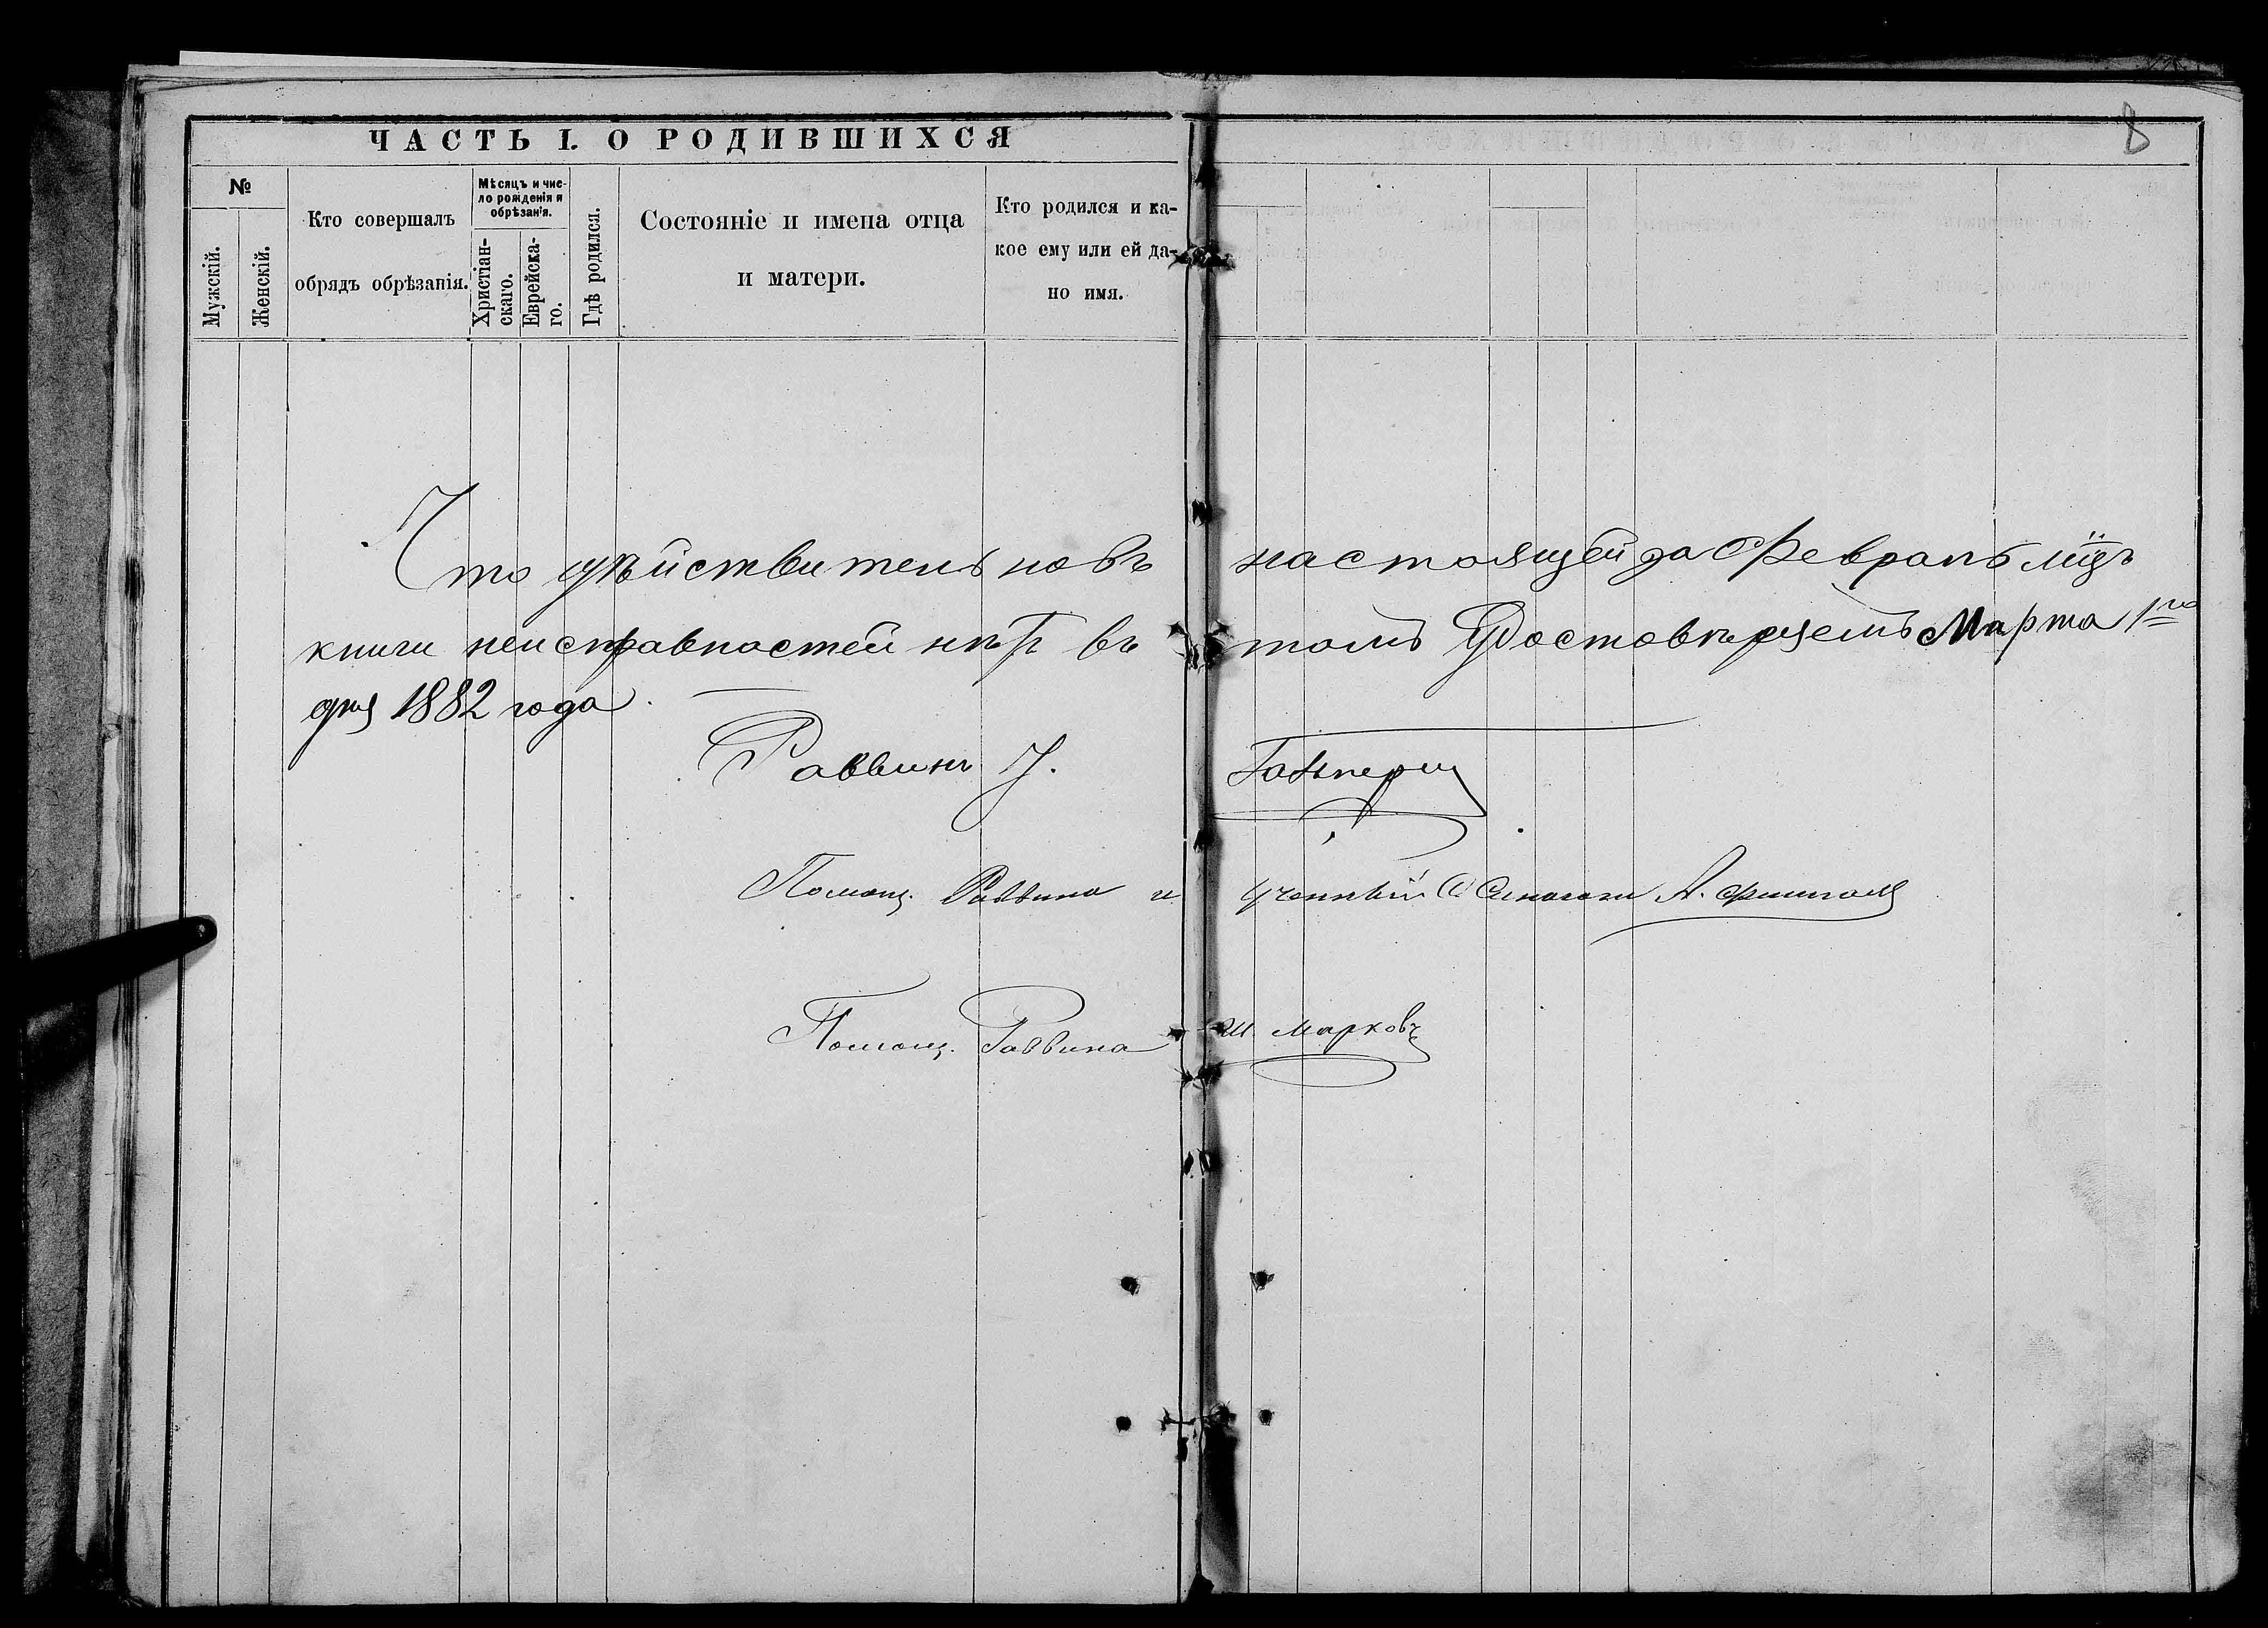 8
ЧАСТЬ I. О РОДИВШИХСЯ
№
Мужскій.
Женскій.
Кто совершалъ
обрядъ обрѣзанія.
Мѣсяцъ и чис-
ло рожденія и
обрѣзанія.
Христіан-
скаго.
Еврейска-
го.
Гдѣ родился.
Состояніе и имена отца
и матери.
Кто родился и ка-
кое ему или ей да-
но имя.
Что дѣйствительно въ настоящей за Февраль мцъ
книги неисправностей нѣтъ въ томъ Удостовѣряемъ Марта 1го
дня 1882 года.
Раввинъ У. Гальперин
Помощ. Раввина и ученный Синагоги А.
Помощ. Раввина Ш. Марковъ